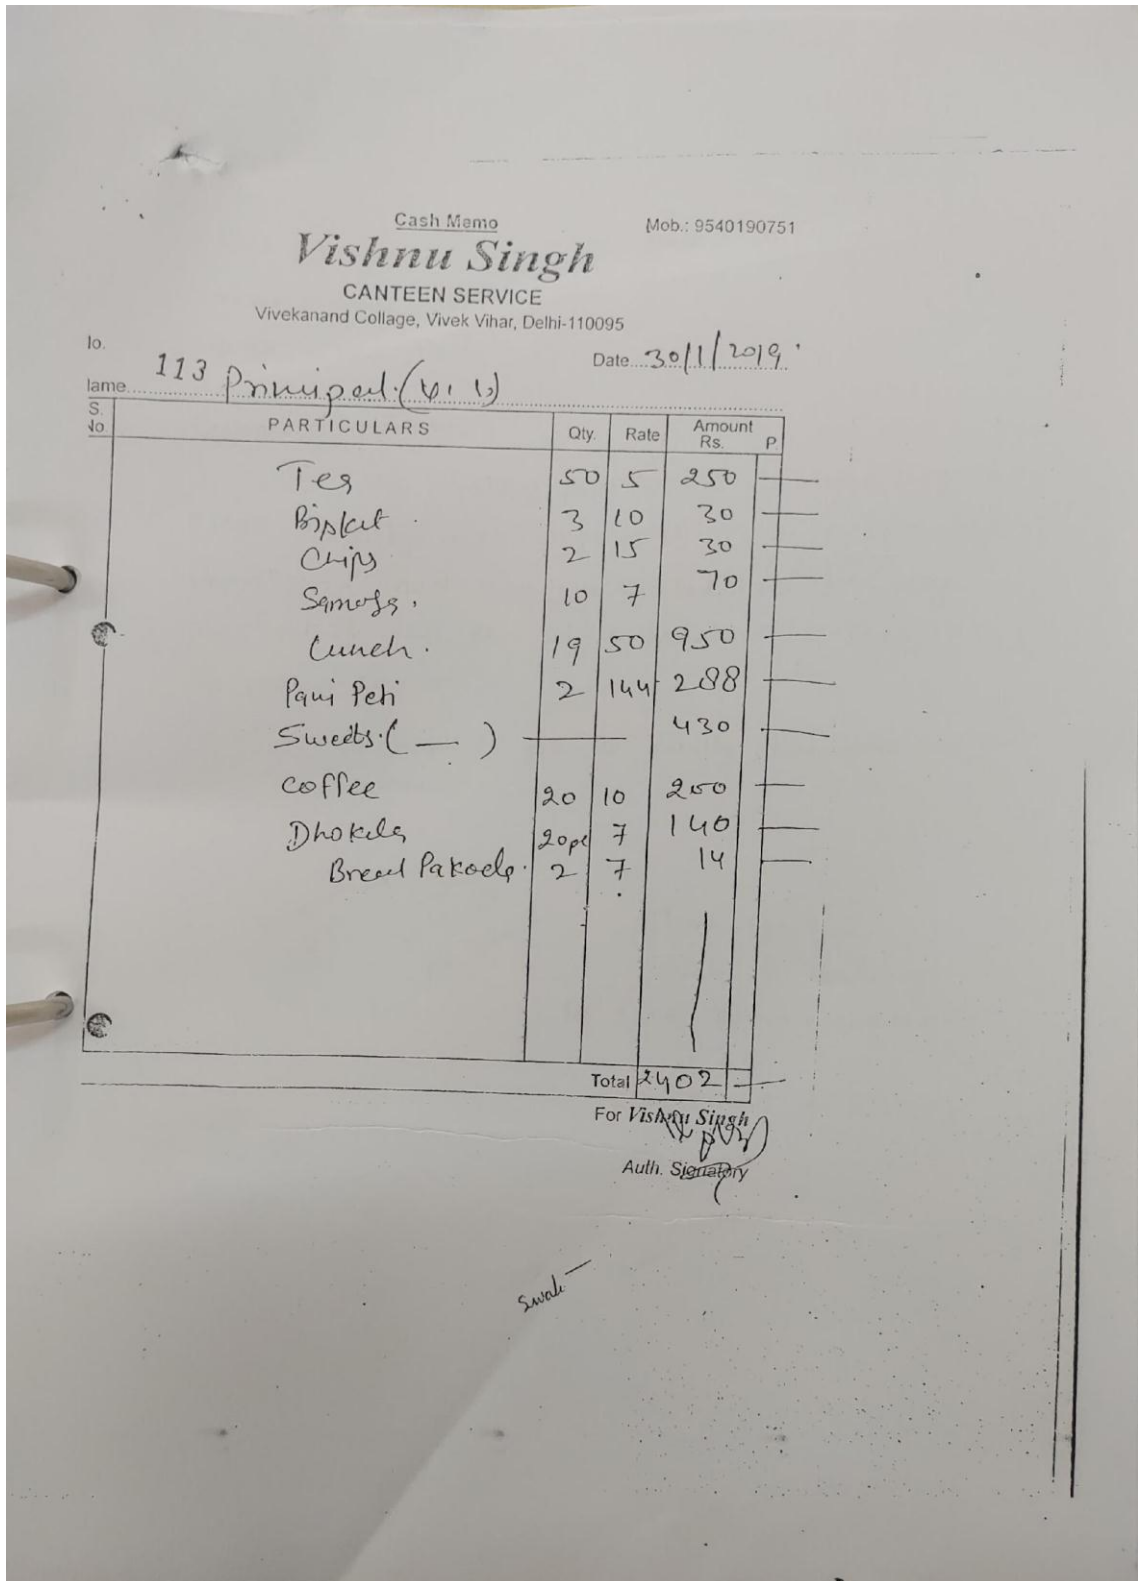 Cash Memo Mob.: 9540190751
Vishnu Singh
CANTEEN SERVICE
Vivekanand Collage, Vivek Vihar, Delhi-110095
Io.
113 Date 30/1/2019
lame Principal
S. No. PARTICULARS Qty. Rate Amount Rs. P.
Tea 50 5 250
Bisket 3 10 30
Chips 2 15 30
Samosa 10 7 70
Lunch 19 50 950
Pani Peti 2 144 288
Sweets (—) 430
Coffee 20 10 200
Dhokla 20pc 7 140
Bread Pakoda 2 7 14
Total 2402
For Vishnu Singh
Auth. Signatory